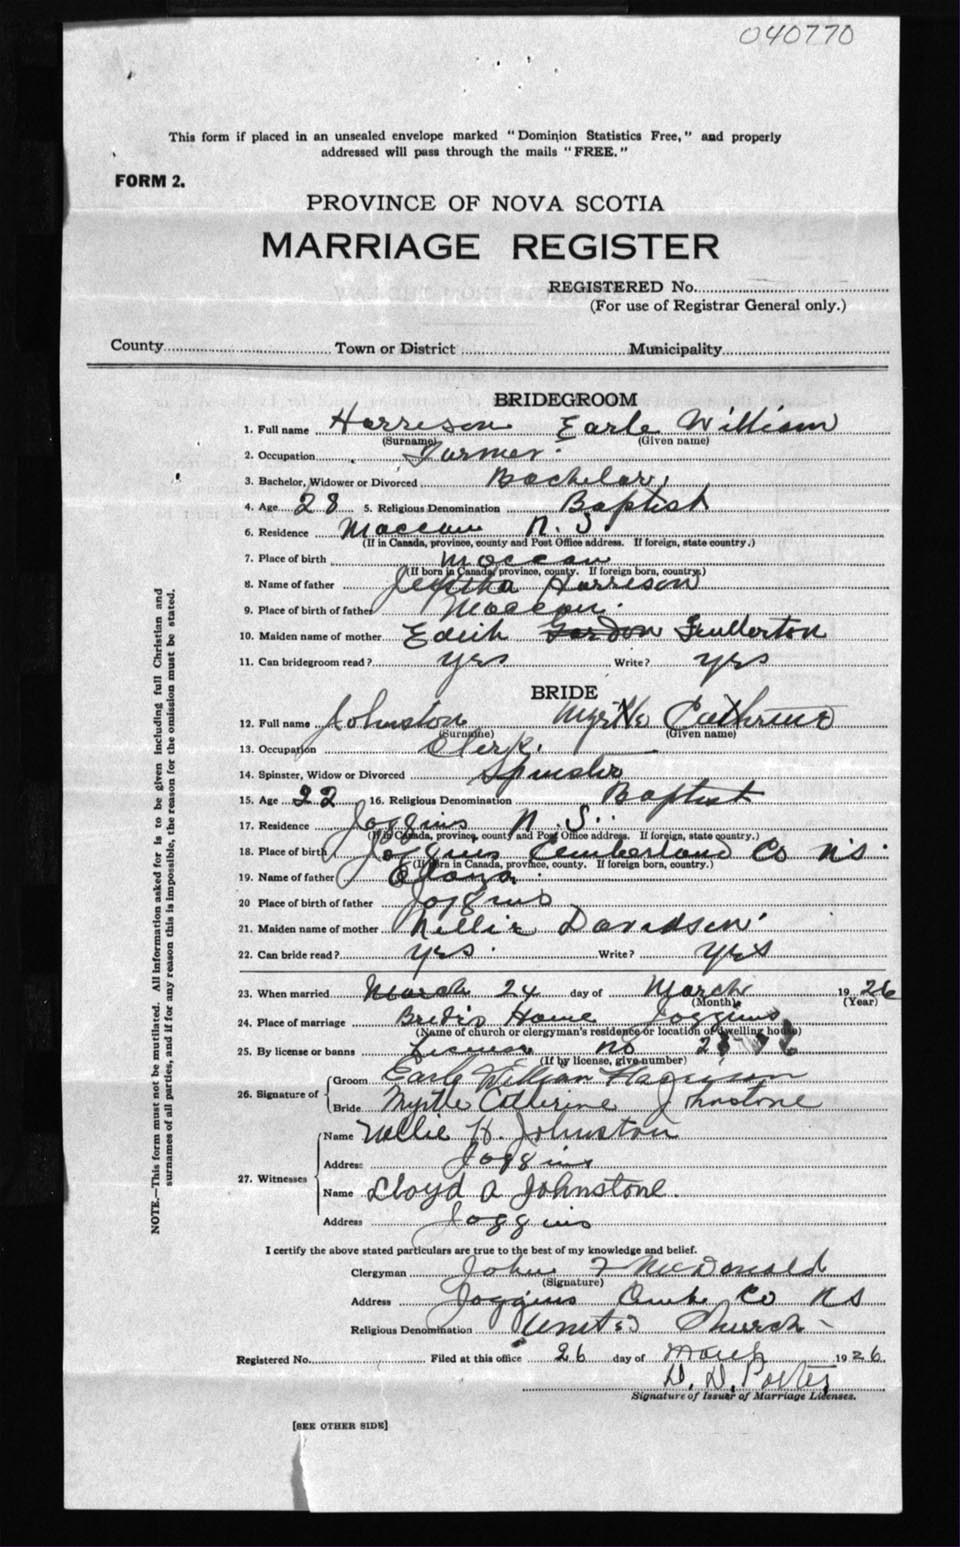 040770
This form if placed in an unsealed envelope marked "Dominion Statistics Free," and properly
addressed will pass through the mails "FREE."
FORM 2.
PROVINCE OF NOVA SCOTIA
MARRIAGE REGISTER
REGISTERED No.
(For use of Registrar General only.)
County Town or District Municipality
BRIDEGROOM
1. Full name Harrison Earle William
(Surname) (Given name)
2. Occupation Farmer
3. Bachelor, Widower or Divorced Bachelor
4. Age 28 5. Religious Denomination Baptist
6. Residence Maccan N.S
(If in Canada, province, county and Post Office address. If foreign, state country.)
7. Place of birth Maccan
(If born in Canada, province, county. If foreign born, country.)
8. Name of father Harrison
9. Place of birth of father Maccan.
10. Maiden name of mother Edith Gordon Fullerton
11. Can bridegroom read? yes Write? yes
BRIDE
12. Full name Johnston Myrtle Cathrine
(Surname) (Given name)
13. Occupation Clerk.
14. Spinster, Widow or Divorced Spinster
15. Age 22 16. Religious Denomination Baptist
17. Residence Joggins N.S.
(If in Canada, province, county and Post Office address. If foreign, state country.)
18. Place of birth Joggins Cumberland Co N.S.
(If born in Canada, province, county. If foreign born, country.)
19. Name of father
20 Place of birth of father Joggins
21. Maiden name of mother Nellie Davidson
22. Can bride read? yes. Write? yes
23. When married March 24 day of March 1926
(Month) (Year)
24. Place of marriage Bride's Home Joggins
(Name of church or clergyman's residence or location of dwelling house)
25. By license or banns License no
(If by license, give number)
26. Signature of Groom Earle William Harrison
Bride Myrtle Catherine Johnstone
27. Witnesses
Name Nellie H. Johnston
Address Joggins
Name Lloyd A Johnstone.
Address Joggins
I certify the above stated particulars are true to the best of my knowledge and belief.
Clergyman John F McDonald
(Signature)
Address Joggins Cumb Co N S
Religious Denomination United Church
Registered No. Filed at this office 26 day of March 1926
D. D. Porter
Signature of Issuer of Marriage Licenses.
[SEE OTHER SIDE]
NOTE.—This form must not be mutilated. All information asked for is to be given including full Christian and
surnames of all parties, and if for any reason this is impossible, the reason for the omission must be stated.